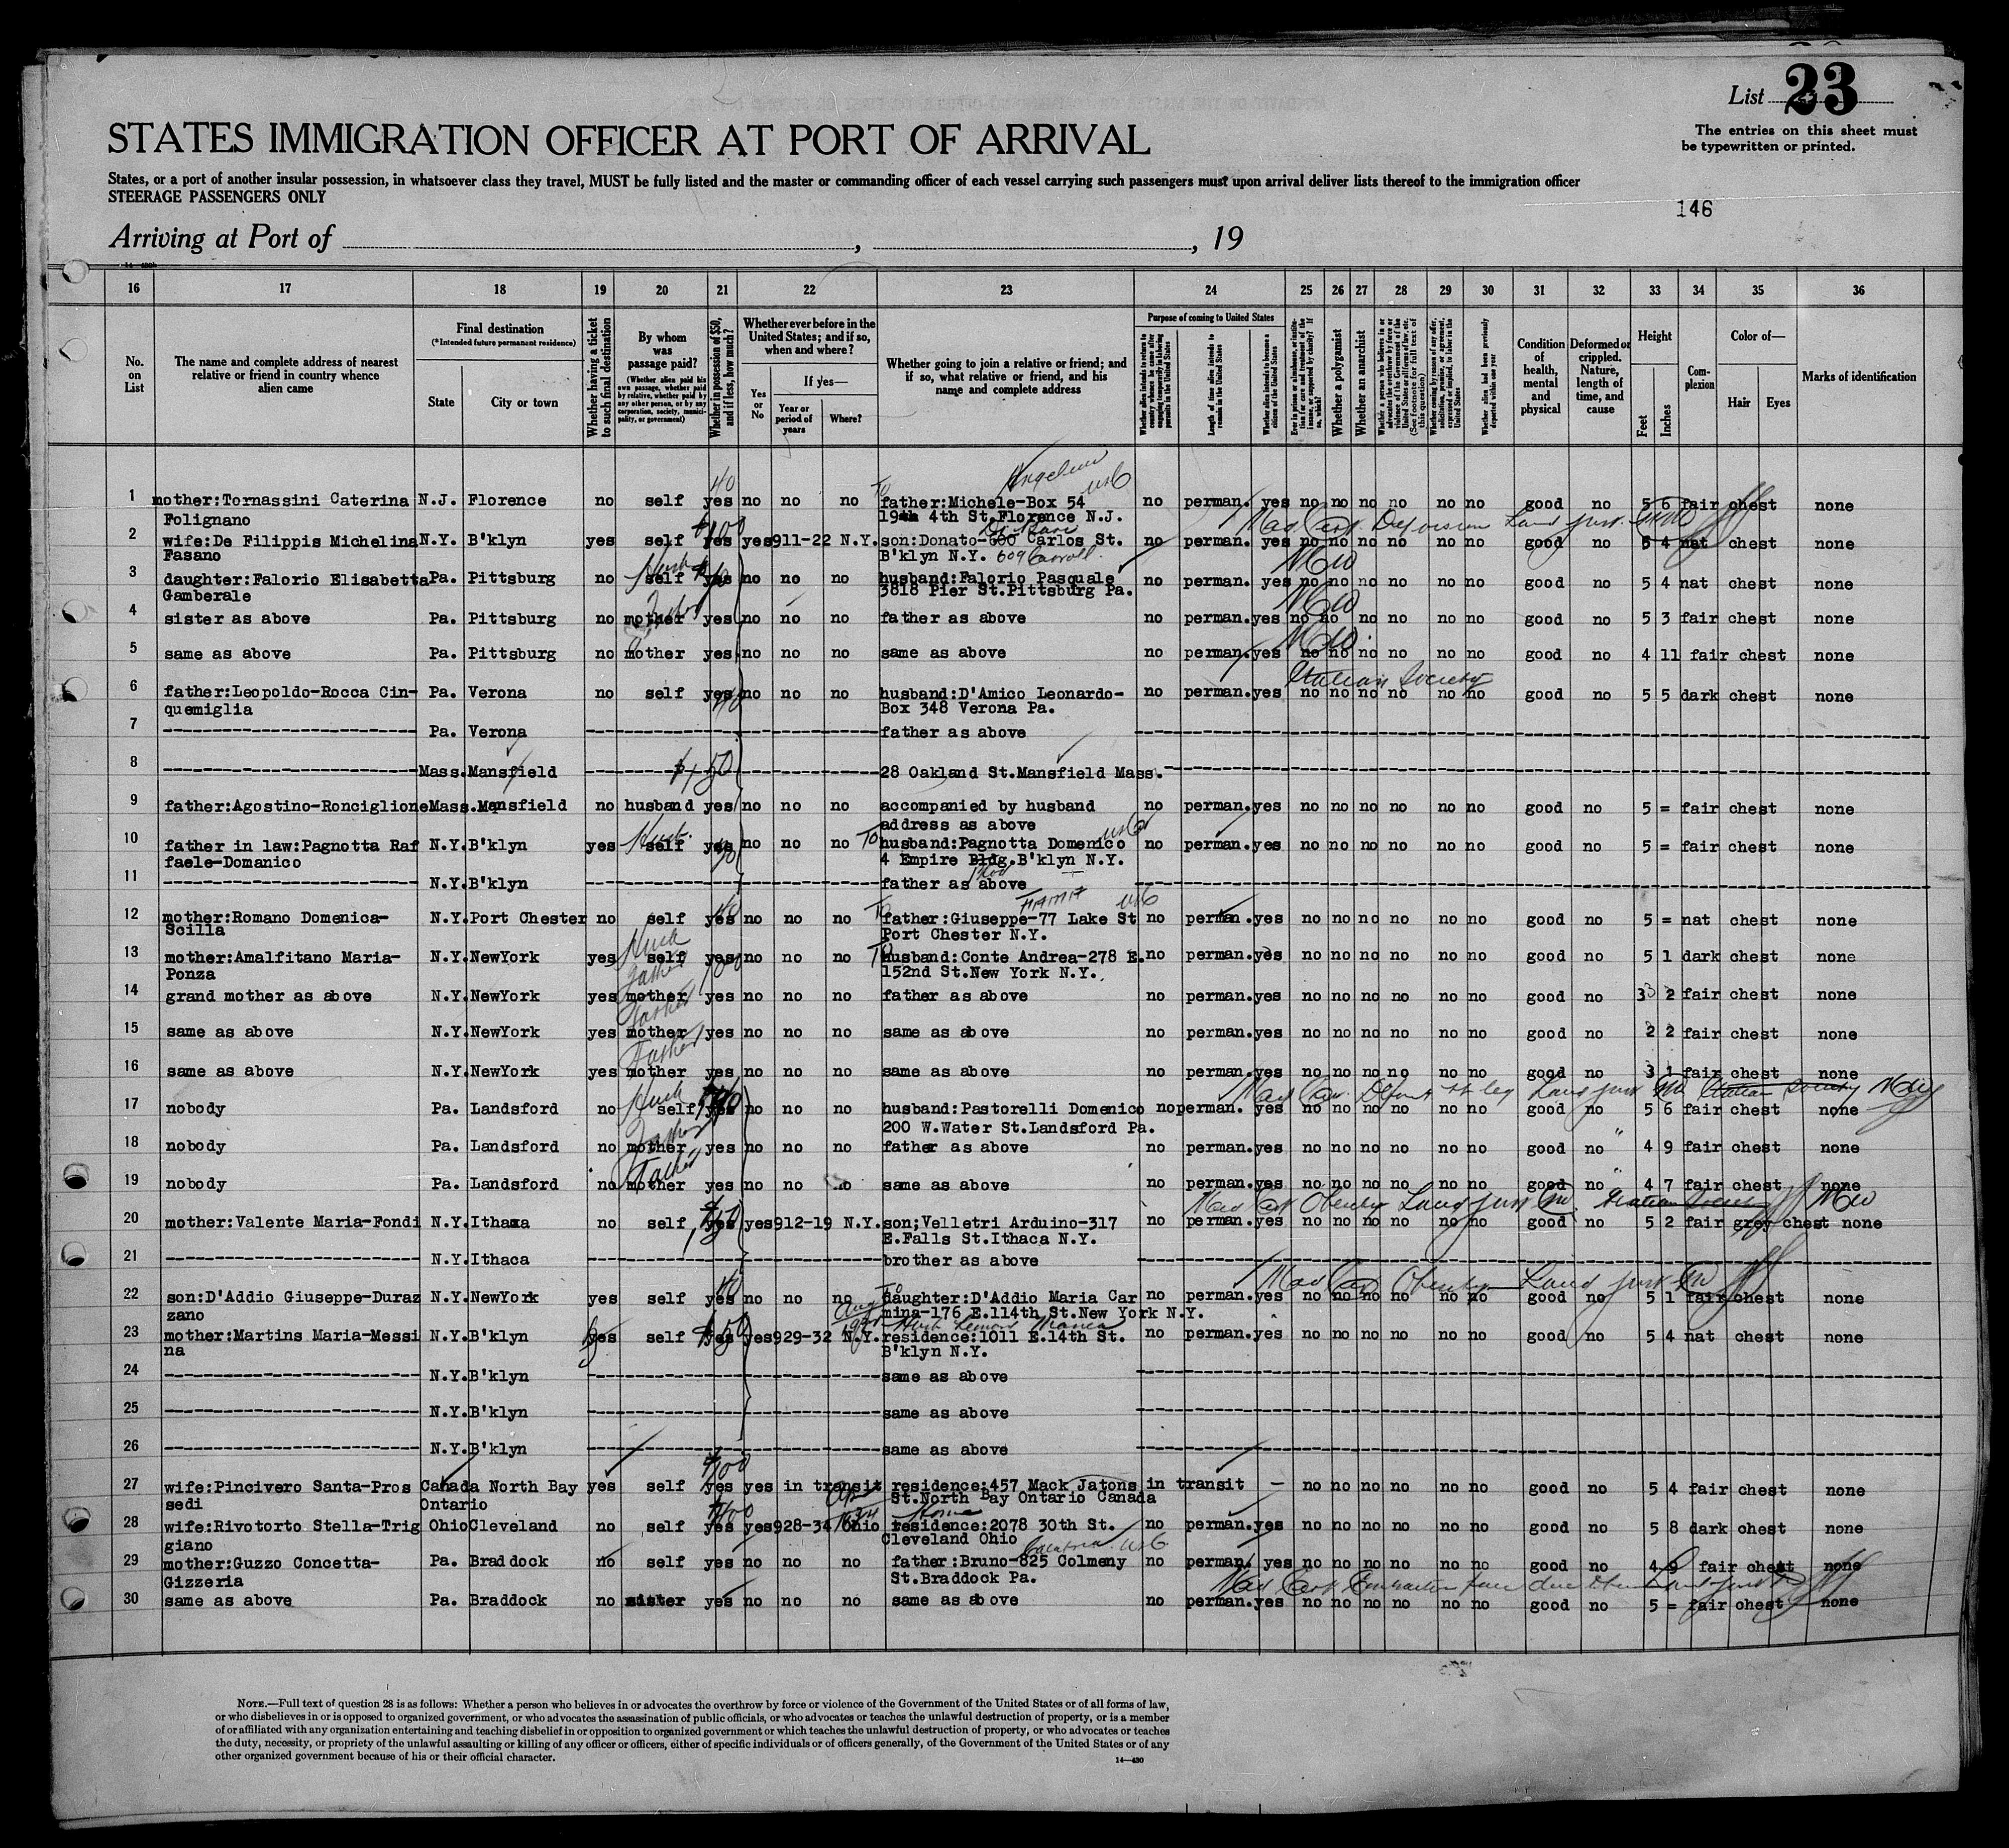 List 23
The entries on this sheet must
be typewritten or printed.
STATES IMMIGRATION OFFICER AT PORT OF ARRIVAL
States, or a port of another insular possession, in whatsoever class they travel, MUST be fully listed and the master or commanding officer of each vessel carrying such passengers must upon arrival deliver lists thereof to the immigration officer
STEERAGE PASSENGERS ONLY
146
Arriving at Port of , , 19
16 17 18 19 20 21 22 23 24 25 26 27 28 29 30 31 32 33 34 35 36
No. on List
The name and complete address of nearest relative or friend in country whence alien came
Final destination
(*Intended future permanent residence)
State
City or town
Whether having a ticket to such final destination
By whom was passage paid?
(Whether alien paid his own passage, whether paid by relative, whether paid by any other person, or by any corporation, society, municipality, or government)
Whether in possession of $50, and if less, how much?
Whether ever before in the United States; and if so, when and where?
Yes or No
If yes—
Year or period of years
Where?
Whether going to join a relative or friend; and if so, what relative or friend, and his name and complete address
Purpose of coming to United States
Length of time alien intends to remain in the United States
Whether alien intends to become a citizen of the United States
Whether a polygamist
Whether an anarchist
Whether alien had been previously deported within one year
Condition of health, mental and physical
Deformed or crippled. Nature, length of time, and cause
Height
Feet
Inches
Complexion
Color of—
Hair
Eyes
Marks of identification
40
1 mother:Tornassini Caterina N.J. Florence no self yes no no no To father:Michele-Box 54 no perman. yes no no no no no no good no 5 6 fair chest none
Folignano 19th 4th St.Florence N.J.
2 wife:De Filippis Michelina N.Y. B'klyn yes self yes yes 911-22 N.Y. son:Donato-600 Carlos St. no perman. yes no no no no no no good no 5 4 nat chest none
Fasano B'klyn N.Y. 609 Carroll
3 daughter:Falorio Elisabetta Pa. Pittsburg no self yes no no no husband:Falorio Pasquale no perman. yes no no no no no no good no 5 4 nat chest none
Gamberale 3818 Pier St.Pittsburg Pa.
4 sister as above Pa. Pittsburg no mother yes no no no father as above no perman. yes no no no no no no good no 5 3 fair chest none
5 same as above Pa. Pittsburg no mother yes no no no same as above no perman. yes no no no no no no good no 4 11 fair chest none
Italian Society
6 father:Leopoldo-Rocca Cin- Pa. Verona no self yes no no no husband:D'Amico Leonardo- no perman. yes no no no no no no good no 5 5 dark chest none
quemiglia Box 348 Verona Pa.
7 Pa. Verona father as above
8 Mass. Mansfield 28 Oakland St.Mansfield Mass.
9 father:Agostino-Ronciglione Mass. Mansfield no husband yes no no no accompanied by husband no perman. yes no no no no no no good no 5 = fair chest none
address as above
10 father in law:Pagnotta Raf N.Y. B'klyn yes self yes no no no To husband:Pagnotta Domenico no perman. yes no no no no no no good no 5 = fair chest none
faele-Domanico 4 Empire Bldg.B'klyn N.Y.
11 N.Y. B'klyn father as above
12 mother:Romano Domenica- N.Y. Port Chester no self yes no no no To father:Giuseppe-77 Lake St no perman. yes no no no no no no good no 5 = nat chest none
Scilla Port Chester N.Y.
13 mother:Amalfitano Maria- N.Y. NewYork yes self yes no no no To husband:Conte Andrea-278 E. no perman. yes no no no no no no good no 5 1 dark chest none
Ponza 152nd St.New York N.Y.
14 grand mother as above N.Y. NewYork yes mother yes no no no father as above no perman. yes no no no no no no good no 3 2 fair chest none
15 same as above N.Y. NewYork yes mother yes no no no same as above no perman. yes no no no no no no good no 2 2 fair chest none
16 same as above N.Y. NewYork yes mother yes no no no same as above no perman. yes no no no no no no good no 3 1 fair chest none
17 nobody Pa. Landsford no self yes no no no husband:Pastorelli Domenico no perman. yes no no no no no no good no 5 6 fair chest none
200 W.Water St.Landsford Pa.
18 nobody Pa. Landsford no mother yes no no no father as above no perman. yes no no no no no no good no 4 9 fair chest none
19 nobody Pa. Landsford no mother yes no no no same as above no perman. yes no no no no no no good no 4 7 fair chest none
20 mother:Valente Maria-Fondi N.Y. Ithaca no self yes yes 912-19 N.Y. son;Velletri Arduino-317 no perman. yes no no no no no no good no 5 2 fair grey chest none
E.Falls St.Ithaca N.Y.
21 N.Y. Ithaca brother as above
22 son:D'Addio Giuseppe-Duraz N.Y. NewYork yes self yes no no no daughter:D'Addio Maria Car no perman. yes no no no no no no good no 5 1 fair chest none
zano mina-176 E.114th St.New York N.Y.
23 mother:Martins Maria-Messi N.Y. B'klyn yes self yes yes 929-32 N.Y. residence:1011 E.14th St. no perman. yes no no no no no no good no 5 4 nat chest none
na B'klyn N.Y.
24 N.Y. B'klyn same as above
25 N.Y. B'klyn same as above
26 N.Y. B'klyn same as above
27 wife:Pincivero Santa-Pros Canada North Bay yes self yes yes in transit residence:457 Mack Jatons in transit — no no no no no no good no 5 4 fair chest none
sedi Ontario St.North Bay Ontario Canada
28 wife:Rivotorto Stella-Trig Ohio Cleveland no self yes yes 928-34 Ohio residence:2078 30th St. no perman. yes no no no no no no good no 5 8 dark chest none
giano Cleveland Ohio
29 mother:Guzzo Concetta- Pa. Braddock no self yes no no no father:Bruno-825 Colmeny no perman. yes no no no no no no good no 4 9 fair chest none
Gizzeria St.Braddock Pa.
30 same as above Pa. Braddock no sister yes no no no same as above no perman. yes no no no no no no good no 5 = fair chest none
NOTE.—Full text of question 28 is as follows: Whether a person who believes in or advocates the overthrow by force or violence of the Government of the United States or of all forms of law,
or who disbelieves in or is opposed to organized government, or who advocates the assassination of public officials, or who advocates or teaches the unlawful destruction of property, or is a member
of or affiliated with any organization entertaining and teaching disbelief in or opposition to organized government or which teaches the unlawful destruction of property, or who advocates or teaches
the duty, necessity, or propriety of the unlawful assaulting or killing of any officer or officers, either of specific individuals or of officers generally, of the Government of the United States or of any
other organized government because of his or their official character.
14—430